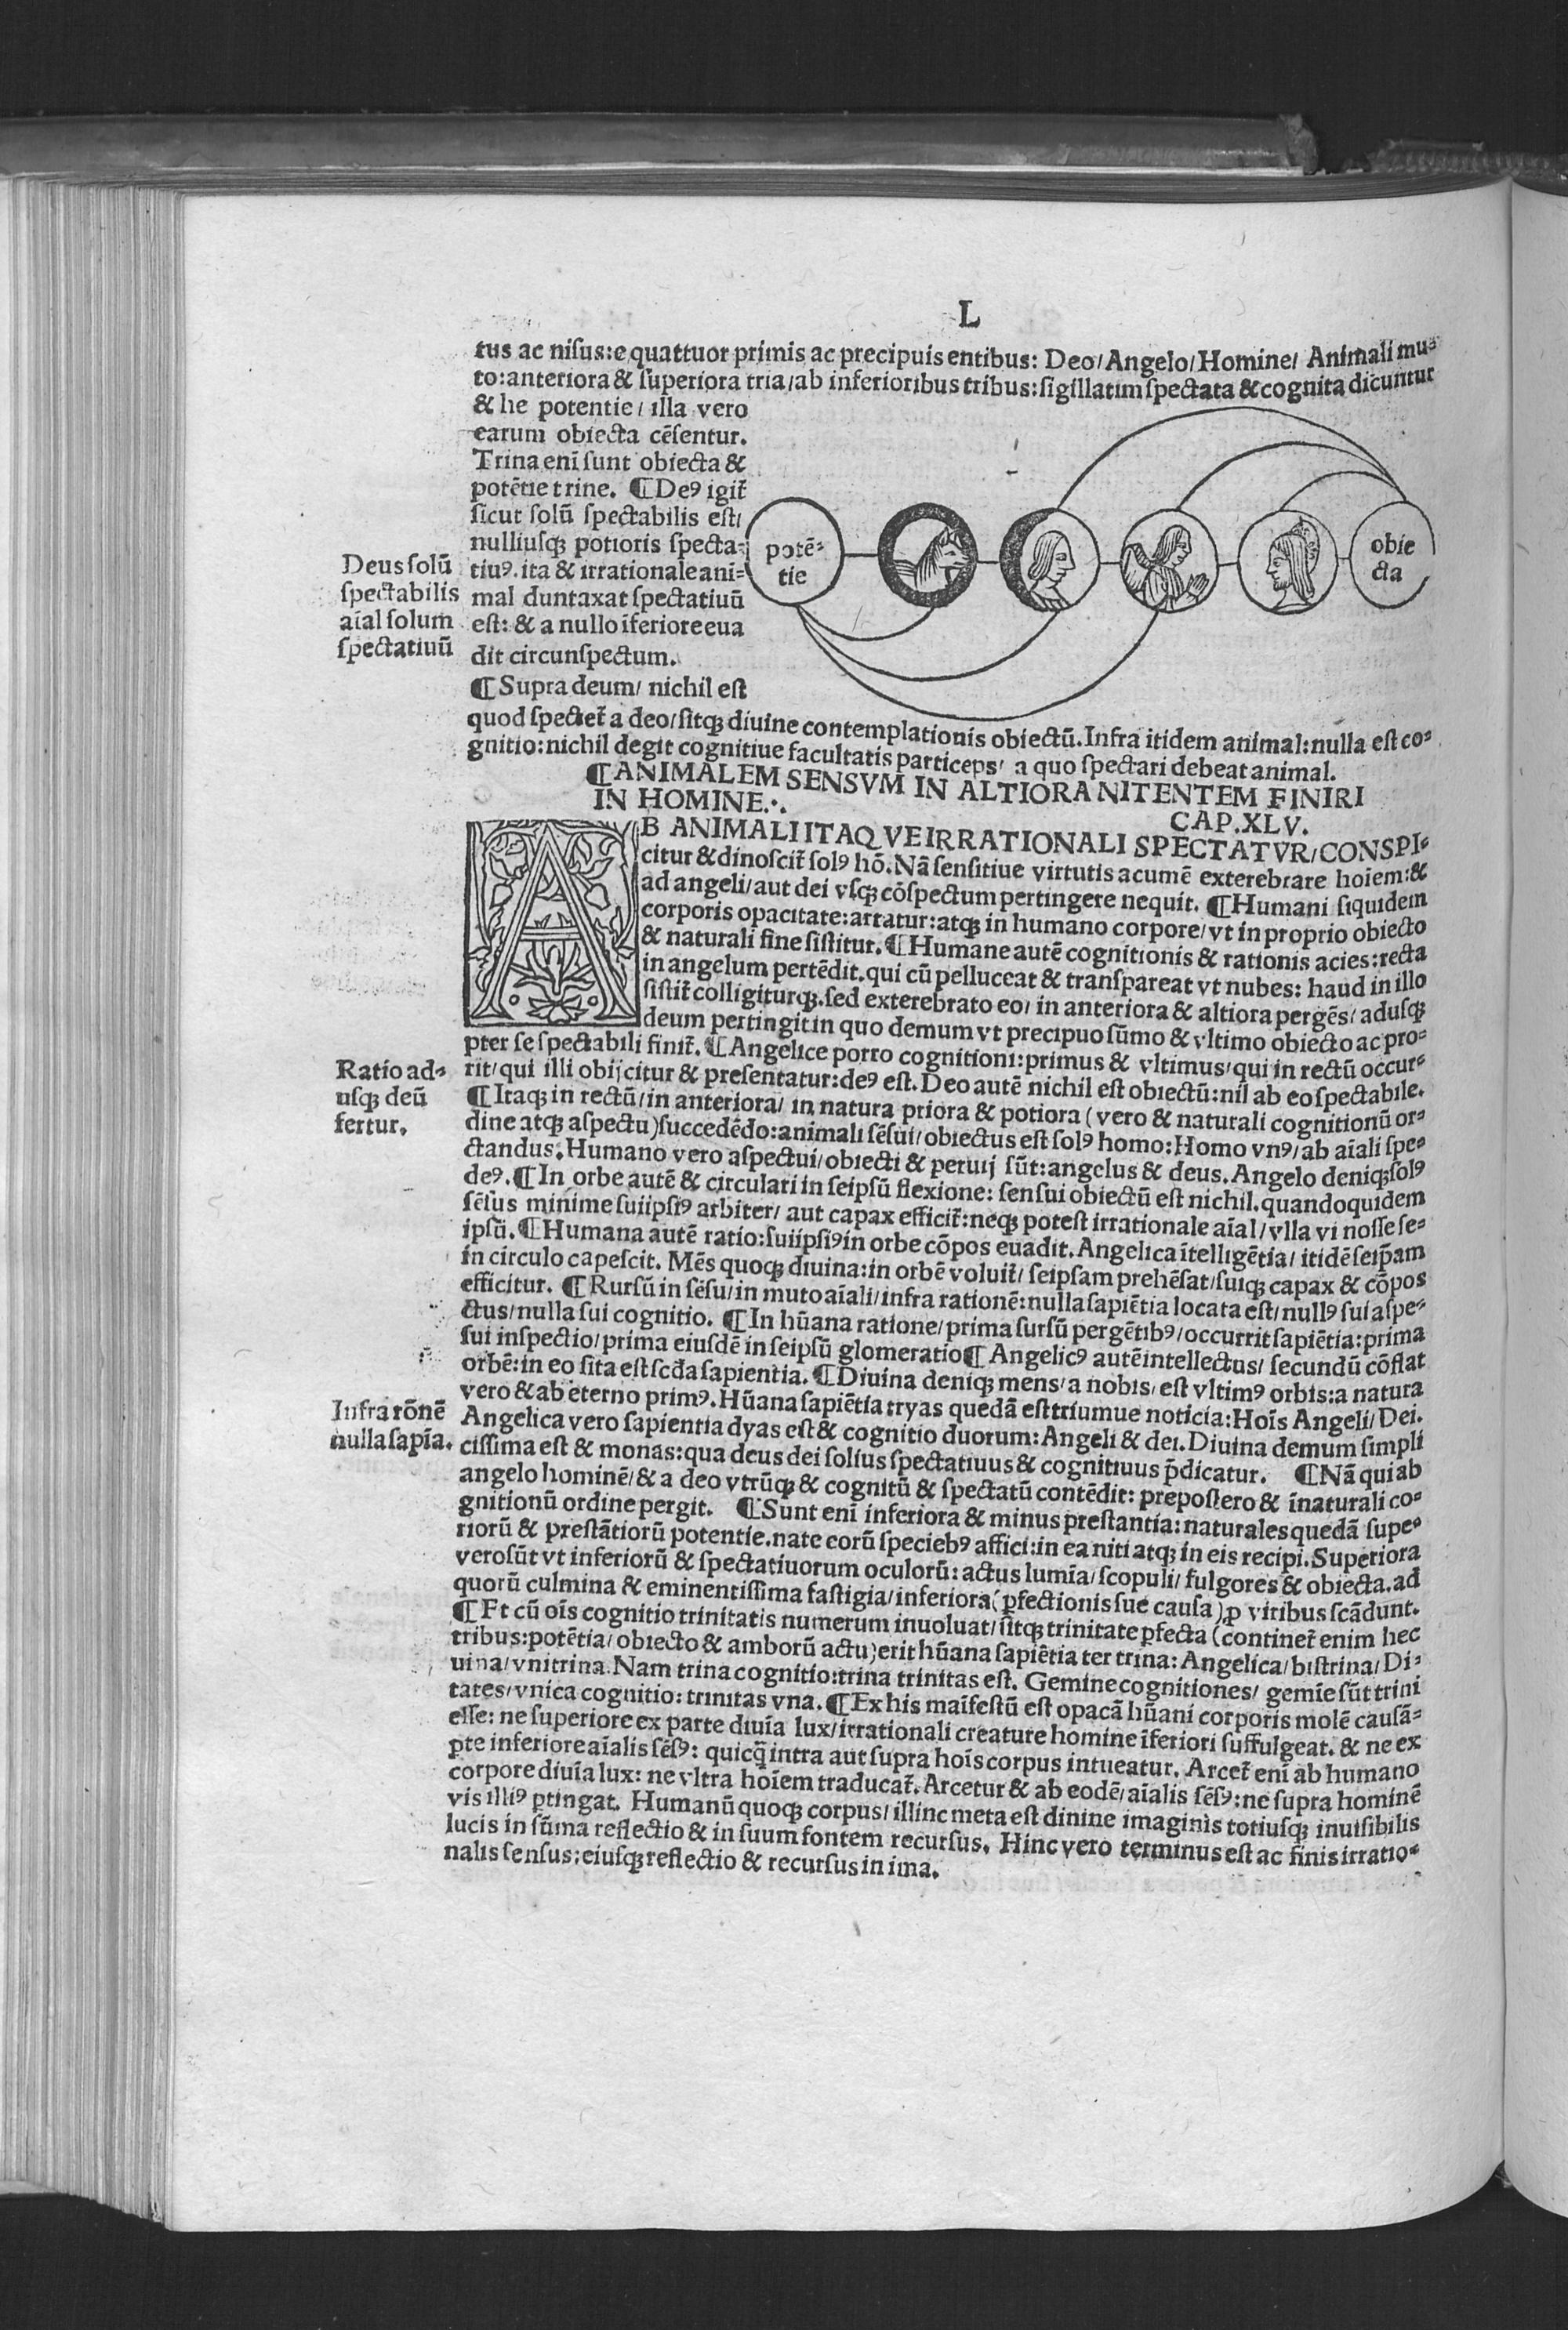 L
tus ac niſus: e quattuor primis ac precipuis entibus: Deo/ Angelo/ Homine/ Animali mu⸗
to: anteriora & ſuperiora tria/ ab inferioribus tribus: ſigillatim ſpectata & cognita dicuntur
& he potentie/ illa vero
earum obiecta cēſentur.
Trina eni̅ ſunt obiecta &
potētie trine. ¶ Deꝰ igit̃
ſicut ſolū ſpectabilis eſt/
nulliuſqꝫ potioris ſpecta⸗
tiuꝰ. ita & irrationale ani⸗
mal duntaxat ſpectatiuū
eſt: & a nullo i̅feriore eua
dit circunſpectum.
¶ Supra deum/ nichil eſt
potē⸗
tie
obie
cta
Deus ſolū
ſpectabilis
ai̅al ſolum
ſpectatiuū
quod ſpectet̃ a deo/ ſitqꝫ diuine contemplationis obiectū. Infra itidem animal: nulla eſt co⸗
gnitio: nichil degit cognitiue facultatis particeps/ a quo ſpectari debeat animal.
¶ ANIMALEM SENSVM IN ALTIORA NITENTEM FINIRI
IN HOMINE.·. CAP. XLV.
AB ANIMALI ITAQVE IRRATIONALI SPECTATVR/ CONSPI⸗
citur & dinoſcit̃ ſolꝰ hō. Nā ſenſitiue virtutis acumē exterebrare hoiem: &
ad angeli/ aut dei vſqꝫ cōſpectum pertingere nequit. ¶ Humani ſiquidem
corporis opacitate: artatur: atqꝫ in humano corpore/ vt in proprio obiecto
& naturali fine ſiſtitur. ¶ Humane autē cognitionis & rationis acies: recta
in angelum pertēdit. qui cū pelluceat & tranſpareat vt nubes: haud in illo
ſiſtit̃ colligiturqꝫ. ſed exterebrato eo/ in anteriora & altiora pergēs/ aduſqꝫ
deum pertingit in quo demum vt precipuo ſūmo & vltimo obiecto ac pro⸗
pter ſe ſpectabili finit̃. ¶ Angelice porro cognitioni: primus & vltimus/ qui in rectū occur⸗
rit/ qui illi obijcitur & preſentatur: deꝰ eſt. Deo autē nichil eſt obiectū: nil ab eo ſpectabile.
Ratio ad⸗
uſqꝫ deū
fertur.
¶ Itaqꝫ in rectū/ in anteriora/ in natura priora & potiora (vero & naturali cognitionū or⸗
dine atqꝫ aſpectu) ſuccedēdo: animali ſēſui/ obiectus eſt ſolꝰ homo: Homo vnꝰ/ ab ai̅ali ſpe⸗
ctandus. Humano vero aſpectui/ obiecti & peruij ſūt: angelus & deus. Angelo deniqꝫ ſolꝰ
deꝰ. ¶ In orbe autē & circulari in ſeipſū flexione: ſenſui obiectū eſt nichil. quandoquidem
ſēſus minime ſuiipſiꝰ arbiter/ aut capax efficit̃: neqꝫ poteſt irrationale ai̅al/ vlla vi noſſe ſe⸗
ipſū. ¶ Humana autē ratio: ſuiipſiꝰ in orbe cōpos euadit. Angelica i̅telligētia/ itidē ſeip̅am
in circulo capeſcit. Mēs quoqꝫ diuina: in orbē voluit̃/ ſeipſam prehēſat/ ſuiqꝫ capax & cōpos
efficitur. ¶ Rurſū in ſēſu/ in muto ai̅ali/ infra rationē: nulla ſapiētia locata eſt/ nullꝰ ſui aſpe⸗
ctus/ nulla ſui cognitio. ¶ In hūana ratione/ prima ſurſū pergētibꝰ/ occurrit ſapiētia: prima
ſui inſpectio/ prima eiuſdē in ſeipſū glomeratio ¶ Angelicꝰ autē intellectus/ ſecundū cōflat
orbē: in eo ſita eſt ſcd̅a ſapientia. ¶ Diuina deniqꝫ mens/ a nobis/ eſt vltimꝰ orbis: a natura
vero & ab eterno primꝰ. Hūana ſapiētia tryas quedā eſt triumue noticia: Hoi̅s Angeli/ Dei.
Infra rōnē
nulla ſapi̅a.
Angelica vero ſapientia dyas eſt & cognitio duorum: Angeli & dei. Diuina demum ſimpli
ciſſima eſt & monas: qua deus dei ſolius ſpectatiuus & cognitiuus p̅dicatur. ¶ Nā qui ab
angelo hominē/ & a deo vtrūqꝫ & cognitū & ſpectatū contēdit: prepoſtero & i̅naturali co⸗
gnitionū ordine pergit. ¶ Sunt eni̅ inferiora & minus preſtantia: naturales quedā ſupe⸗
riorū & preſtātiorū potentie. nate eorū ſpeciebꝰ affici: in ea niti atqꝫ in eis recipi. Superiora
vero ſūt vt inferiorū & ſpectatiuorum oculorū: actus lumi̅a/ ſcopuli/ fulgores & obiecta. ad
quorū culmina & eminentiſſima faſtigia/ inferiora (ꝑfectionis ſue cauſa) ꝓ viribus ſcādunt.
¶ Et cū oi̅s cognitio trinitatis numerum inuoluat/ ſitqꝫ trinitate ꝑfecta (continet̃ enim hec
tribus: potētia/ obiecto & amborū actu) erit hūana ſapiētia ter trina: Angelica/ biſtrina/ Di⸗
uina/ vnitrina. Nam trina cognitio: trina trinitas eſt. Gemine cognitiones/ gemi̅e ſūt trini
tates/ vnica cognitio: trinitas vna. ¶ Ex his mai̅feſtū eſt opacā hūani corporis molē cauſā⸗
eſſe: ne ſuperiore ex parte diui̅a lux/ irrationali creature homine i̅feriori ſuffulgeat. & ne ex
ꝑte inferiore ai̅alis ſēſꝰ: quicq̅ intra aut ſupra hoi̅s corpus intueatur. Arcet̃ eni̅ ab humano
corpore diui̅a lux: ne vltra hoi̅em traducat̃. Arcetur & ab eodē/ ai̅alis ſēſꝰ: ne ſupra hominē
vis illiꝰ ꝑtingat. Humanū quoqꝫ corpus/ illinc meta eſt dinine imaginis totiuſqꝫ inuiſibilis
lucis in ſūma reflectio & in ſuum fontem recurſus. Hinc vero terminus eſt ac finis irratio⸗
nalis ſenſus: eiuſqꝫ reflectio & recurſus in ima.